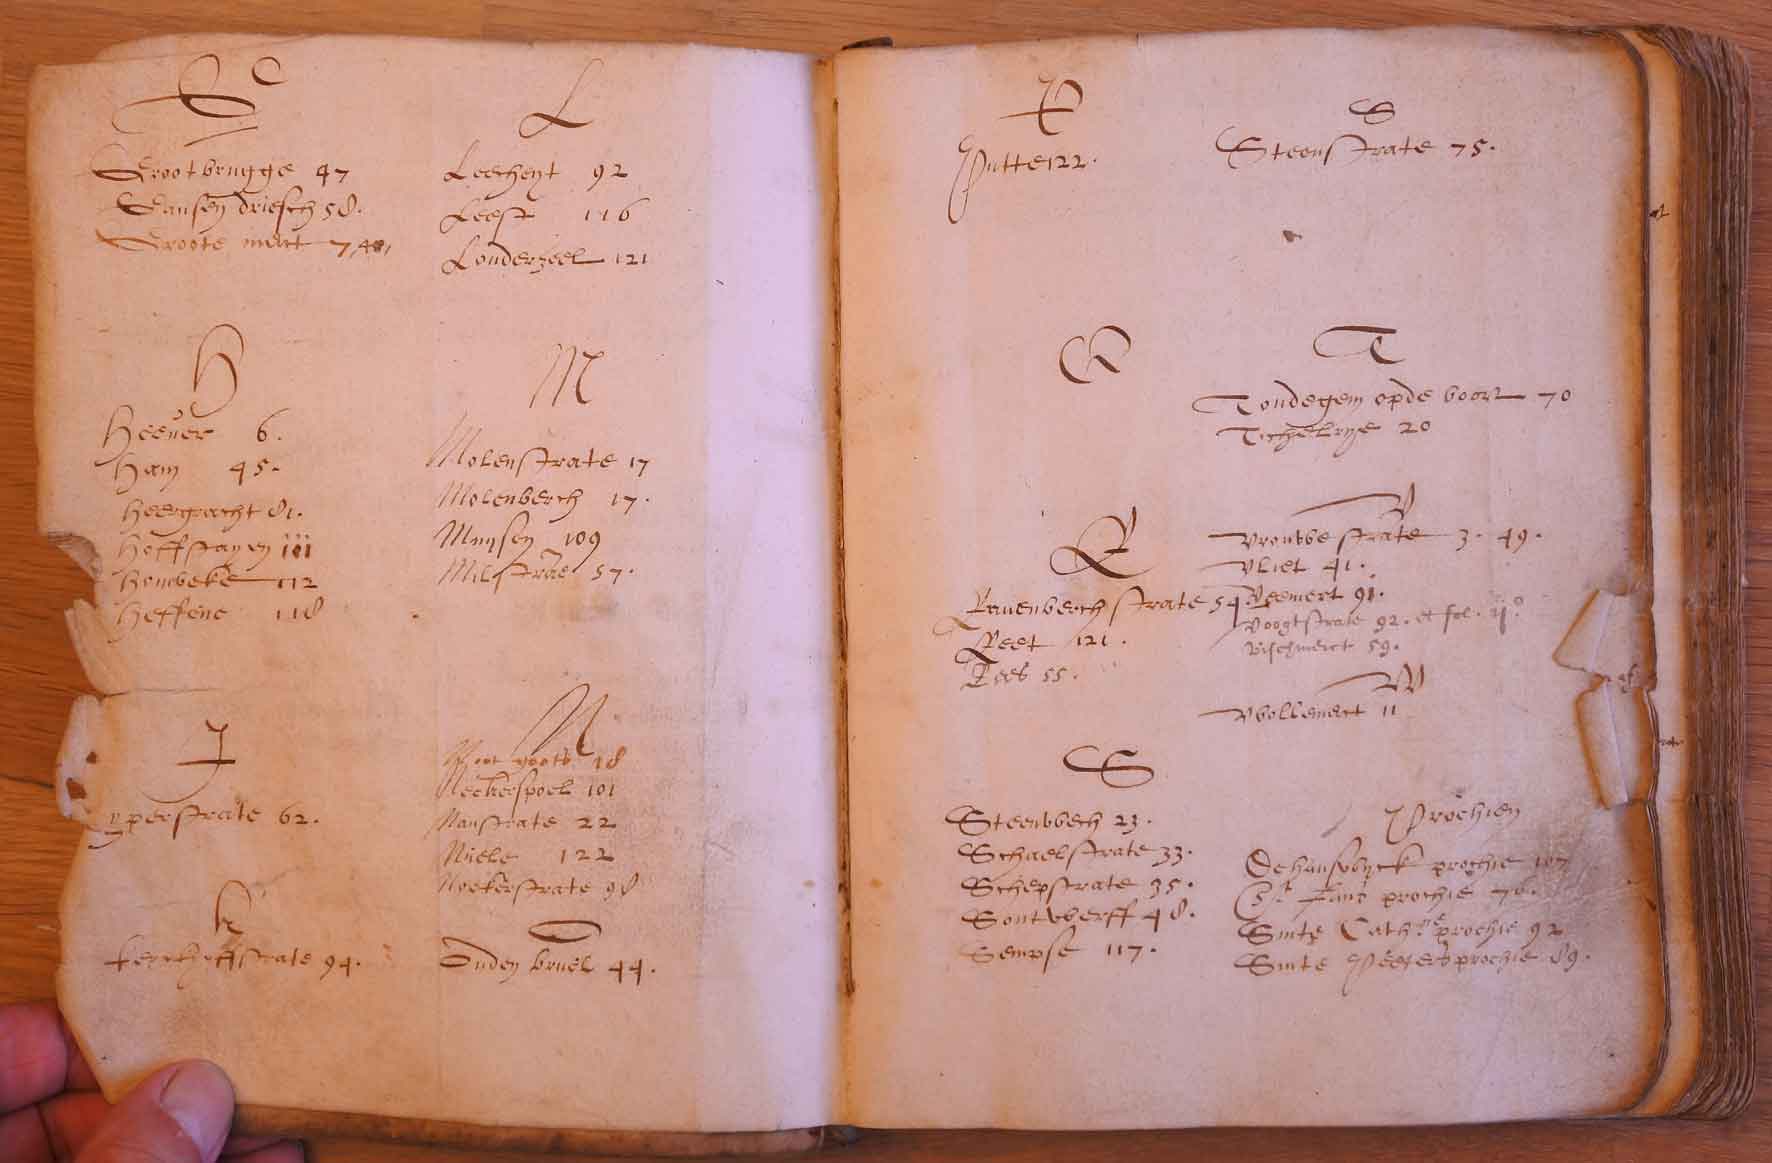 G
Grootbrugge 47
Gansen driesch 58.
Groote merct 7
H
Heever 6.
Ham 45.
Heergracht 81.
Hoffstayen 101
Hombeke 112
Heffene 118
J
yperstrate 62.
K
kerckhoffstrate 94.
L
Leecheyt 92
Leest 116
Londerzeel 121
M
Molenstrate 17
Molenberch 17.
Muysen 109
Milstrate 57.
N
18
Neckerspoel 101
Naustrate 22
Niele 122
Nockerstrate 98
O
Ouden bruel 44.
P
Putte 122.
Q
R
Ravenberch strate 54.
Reet 121.
55.
S
Steenwbech 23.
Schaelstrate 33.
Schepstrate 35.
Sontwerff 48.
Sempse 117.
S
Steenstrate 75.
T
Tondegem opde boort 70
Tichelrye 20
V
Vrouwe strate 3. 49.
Vliet 41.
Veemerct 91.
Voogtstrate 92. et fol.
Vischmerct 59.
W
Wollemerct 11
Prochien
De hanswyck prochie 107
St Jans prochie 76.
Sinte Cath.ne prochie 92
Sinte Peeters prochie 89.